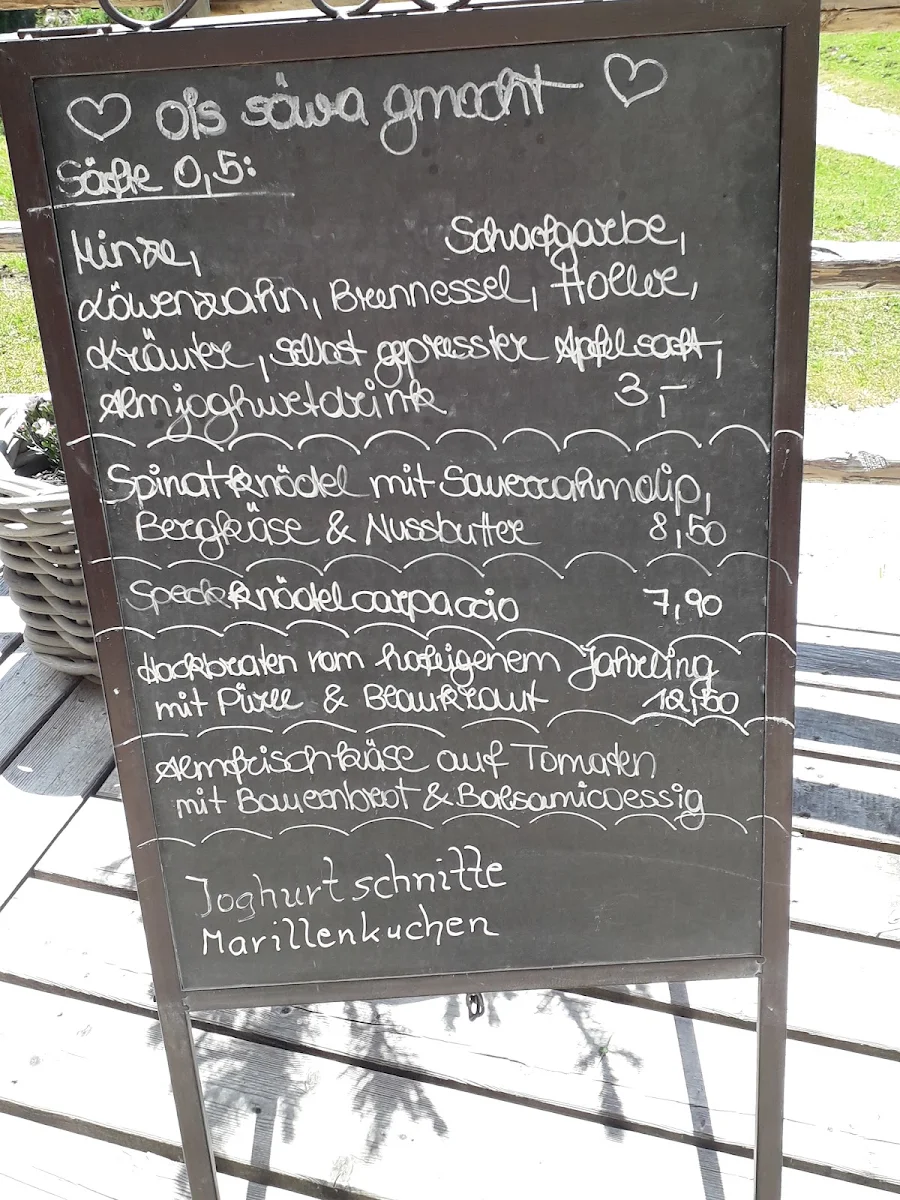 ois säwa gmacht
Säfte 0,5:
Minze, Schafgarbe,
Löwenzahn, Brennessel, Holler,
Kräuter, selbst gepresster Apfelsaft,
Almjoghurtdrink 3,-
Spinatknödel mit Sauerrahmdip,
Bergkäse & Nussbutter 8,50
Speckknödelcarpaccio 7,90
Hackbraten vom hofeigenem Jahrling
mit Püree & Blaukraut
Almfrischkäse auf Tomaten
mit Bauernbrot & Balsamicoessig
Joghurtschnitte
Marillenkuchen